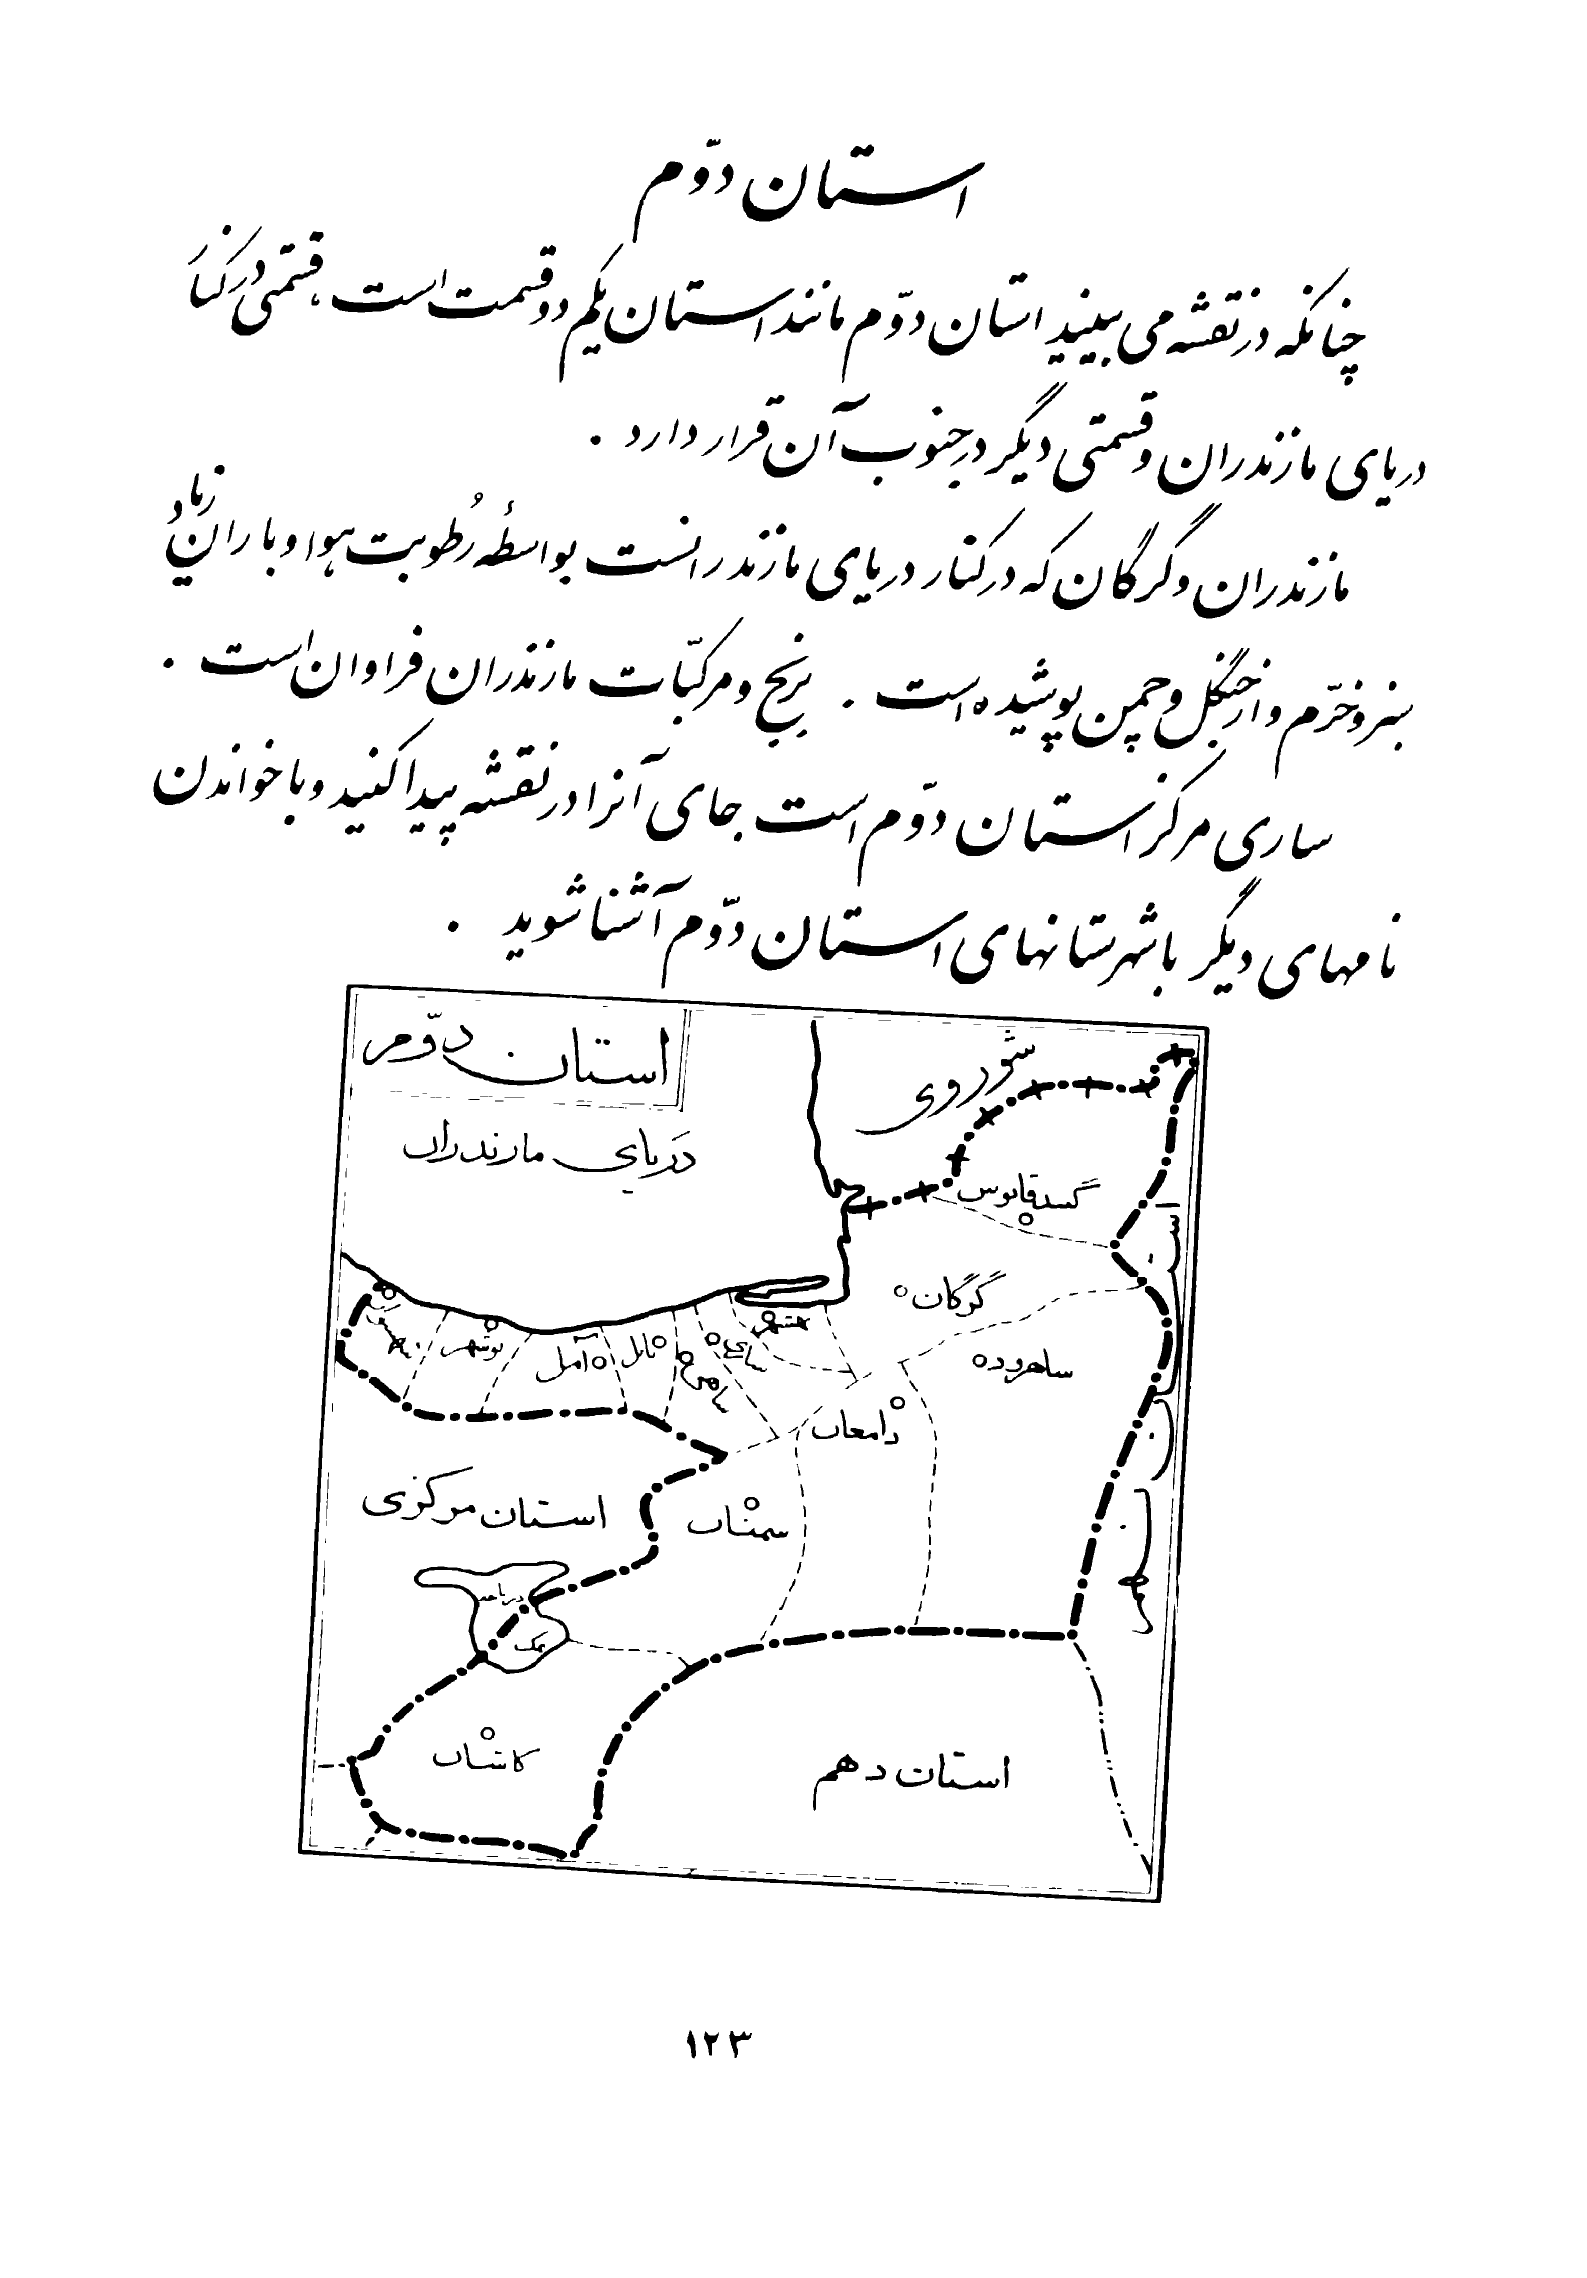 استان دوّم
چنانکه در نقشه می بینید استان دوّم مانند استان یکم دو قسمت است، قسمتی در کنار
دریای مازندران و قسمتی دیگر در جنوب آن قرار دارد .
مازندران و گرگان که در کنار دریای مازندرانست بواسطهٔ رُطوبت هوا و باران زیاد
سبز و خرّم و از جنگل و چمن پوشیده است . برنج و مرکبّات مازندران فراوان است .
ساری مرکز استان دوّم است جای آنرا در نقشه پیدا کنید و با خواندن
نامهای دیگر با شهرستانهای استان دوّم آشنا شوید .
استان دوّم
شوروی
دریای مازندران
گنبد قابوس
گرگان
شهسوار
نوشهر
آمل
بابل
شاهی
ساری
بهشهر
شاهرود
دامغان
سمنان
استان مرکزی
استان نهم
دریاچه
نمک
کاشان
استان دهم
۱۲۳